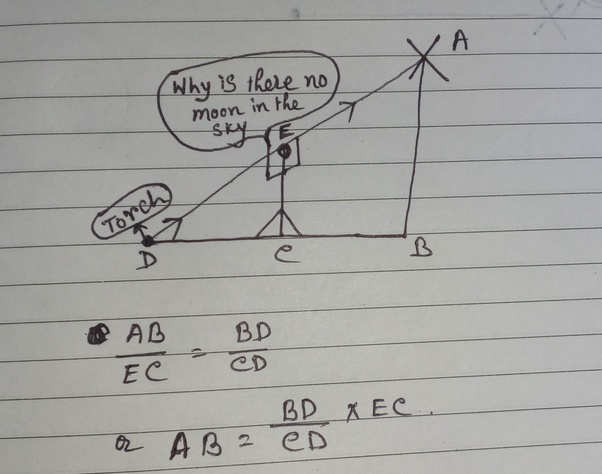 A
Why is there no
moon in the
sky
E
Torch
D
C
B
AB/EC = BD/CD
or AB = BD/CD × EC.